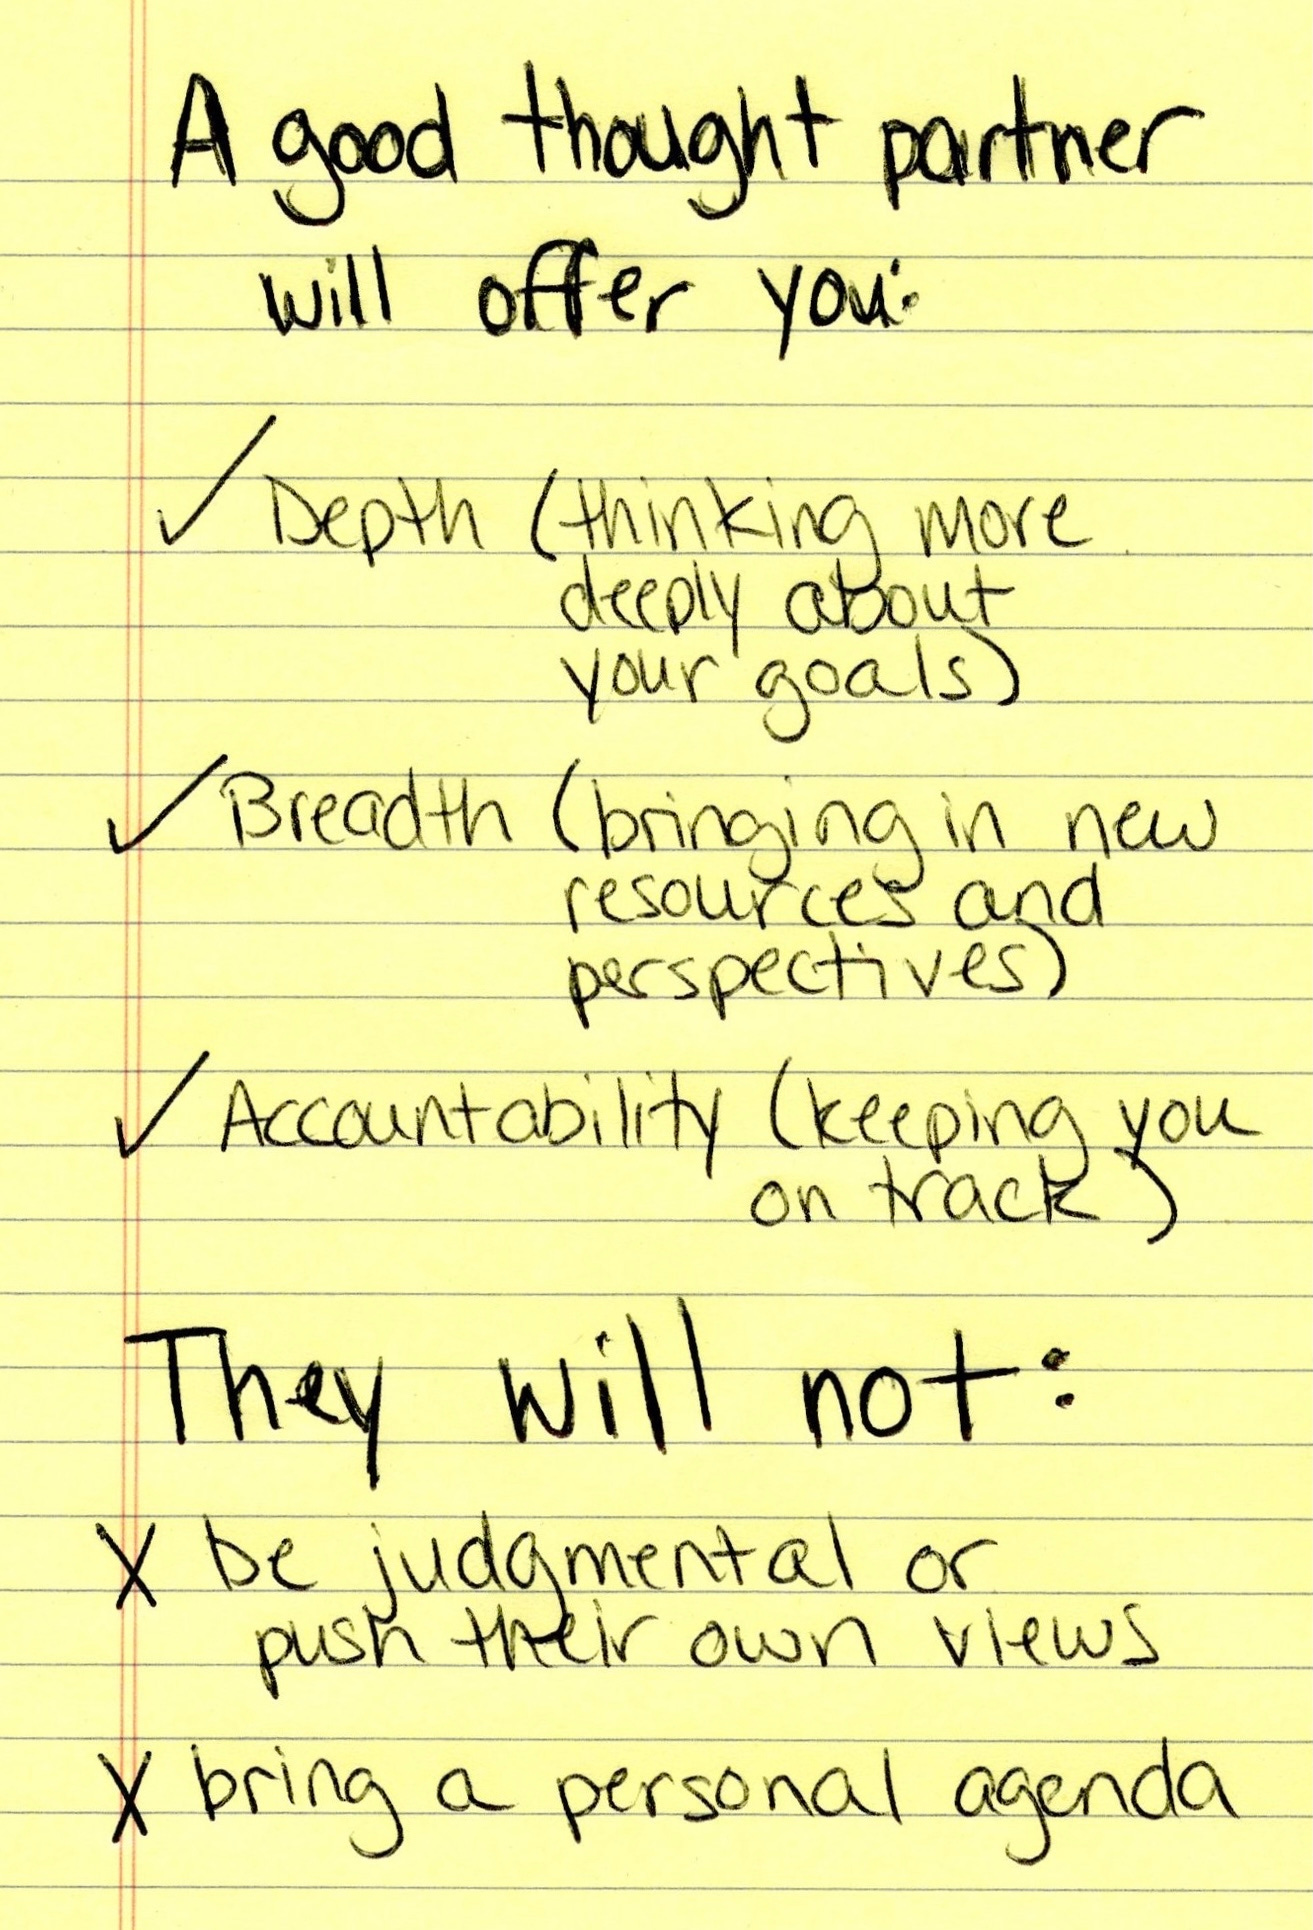 A good thought partner
will offer you:
✓ Depth (thinking more
deeply about
your goals)
✓ Breadth (bringing in new
resources and
perspectives)
✓ Accountability (keeping you
on track)
They will not:
X be judgmental or
push their own views
X bring a personal agenda